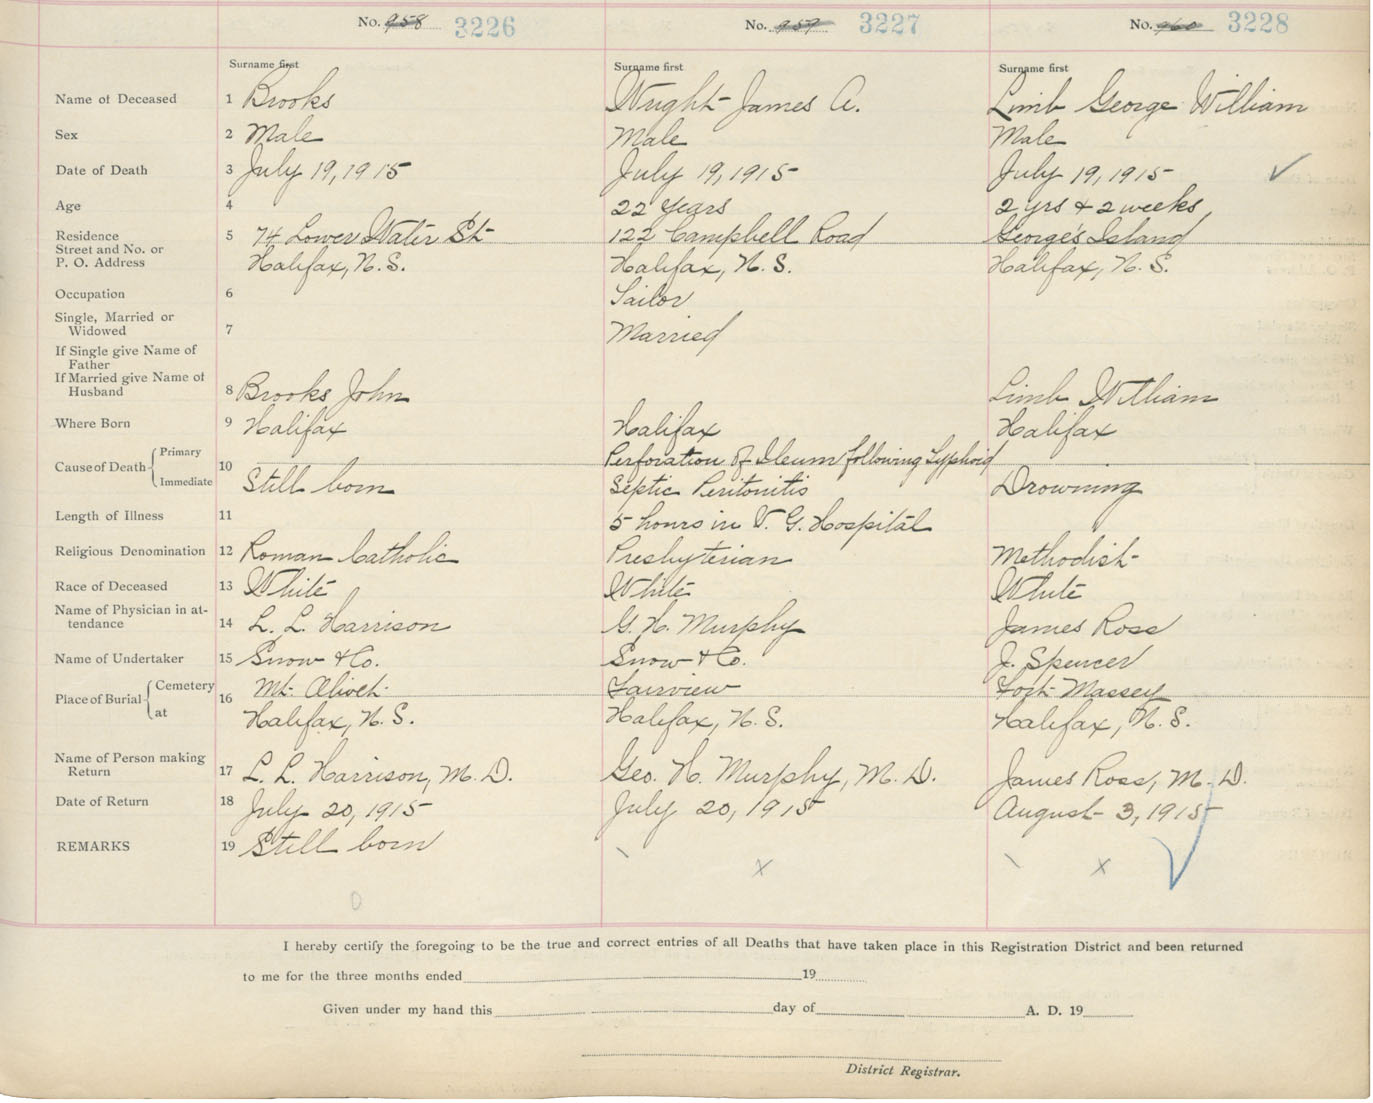 No. 958 3226 No. 959 3227 No. 960 3228
Surname first Surname first Surname first
Name of Deceased 1 Brooks Wright James A. Limb George William
Sex 2 Male Male Male
Date of Death 3 July 19, 1915 July 19, 1915 July 19, 1915 ✓
Age 4 22 years 2 yrs & 2 weeks
Residence 5 74 Lower Water St 122 Campbell Road George's Island
Street and No. or
P. O. Address Halifax, N. S. Halifax, N. S. Halifax, N. S.
Occupation 6 Sailor
Single, Married or
Widowed 7 Married
If Single give Name of
Father
If Married give Name of
Husband 8 Brooks John Limb William
Where Born 9 Halifax Halifax Halifax
Cause of Death Primary 10 Perforation of Ileum following Typhoid
Immediate Still born Septic Peritonitis Drowning
Length of Illness 11 5 hours in V. G. Hospital
Religious Denomination 12 Roman Catholic Presbyterian Methodist
Race of Deceased 13 White White White
Name of Physician in at-
tendance 14 L. L. Harrison G. H. Murphy James Ross
Name of Undertaker 15 Snow & Co. Snow & Co. J. Spencer
Place of Burial Cemetery 16 Mt. Olivet Fairview Fort Massey
at Halifax, N. S. Halifax, N. S. Halifax, N. S.
Name of Person making
Return 17 L. L. Harrison, M. D. Geo. H. Murphy, M. D. James Ross, M. D.
Date of Return 18 July 20, 1915 July 20, 1915 August 3, 1915
REMARKS 19 Still born
I hereby certify the foregoing to be the true and correct entries of all Deaths that have taken place in this Registration District and been returned
to me for the three months ended 19
Given under my hand this day of A. D. 19
District Registrar.